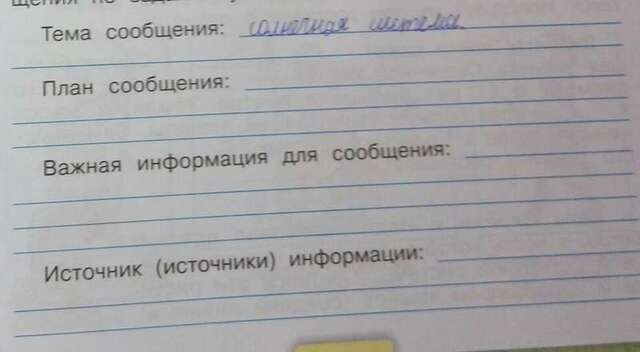 Тема сообщения: солнечная система.
План сообщения:
Важная информация для сообщения:
Источник (источники) информации: